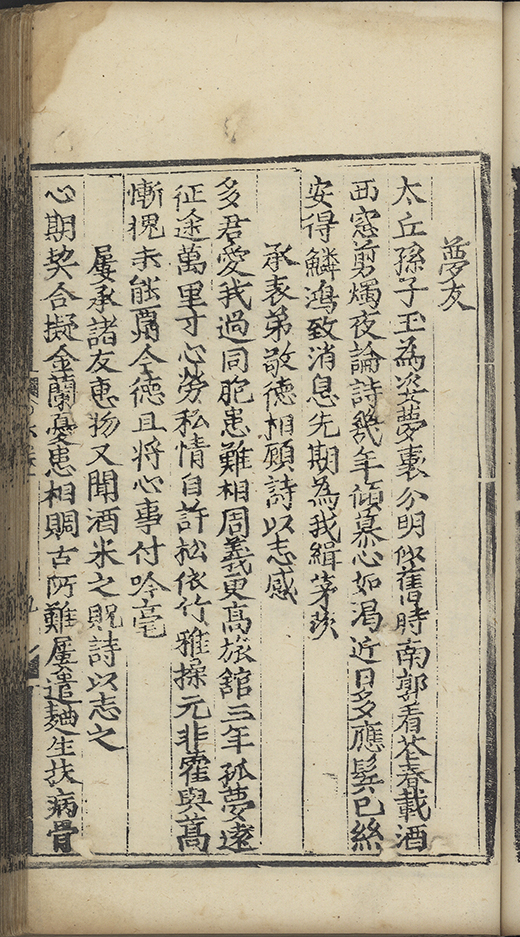 夢友
太丘孫子玉為姿夢裏分明似舊時南郭看花春載酒
西窓剪燭夜論詩幾年傾慕心如渴近日多應鬂已絲
安得鱗鴻致消息先期為我緝茅茨
承表弟敬德相顧詩以志感
多君愛我過同胞患難相周義更高旅舘三年孤夢遠
征途萬里寸心勞私情自許松依竹雅操元非雚與蒿
慚愧未能爾令德且将心事付吟毫
屢承諸友恵物又聞酒米之貺詩以志之
心期契合擬金蘭憂患相賙古所難屢遣麯生扶病骨